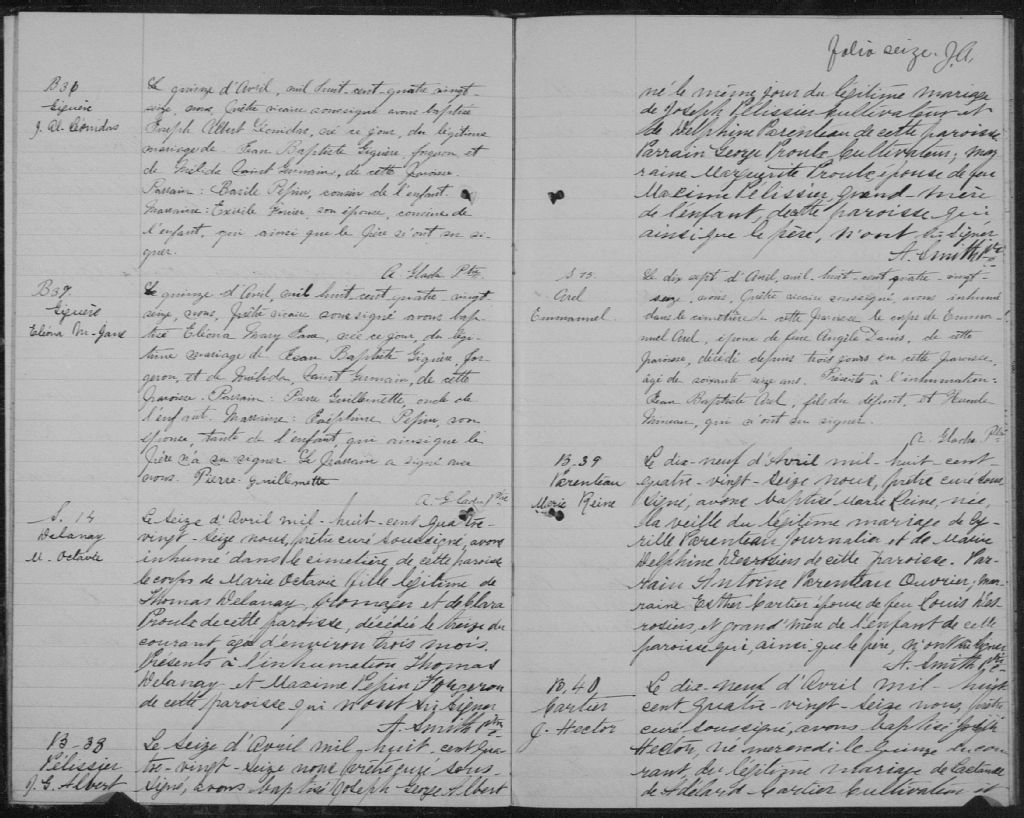 B36
Giguère
J. Al. Léonidas
Le quinze d'Avril, mil huit-cent-quatre-vingt-
seize, nous, Prêtre vicaire soussigné avons baptisé
Joseph Albert Léonidas, né ce jour, du légitime
mariage de Jean Baptiste Giguère, forgeron, et
de Mélida Saint Germain, de cette Paroisse.
Parrain: Basile Pépin, cousin de l'enfant.
Marraine: Exérile, son épouse, cousine de
l'enfant, qui ainsi que le Père n'ont su si-
gner.
A Gladu Ptr.
B37.
Giguère
Eliéna M-Jane
Le quinze d'Avril, mil huit-cent-quatre-vingt
seize, nous, Prêtre vicaire soussigné avons bap-
tisé Eliéna Mary Jane, née ce jour, du légi-
time mariage de Jean Baptiste Giguère, for-
geron, et de Mélida, Saint Germain, de cette
Paroisse. Parrain: Pierre Guillemette, oncle de
l'enfant. Marraine: Exéphirine Pépin, son
épouse, tante de l'enfant, qui ainsi que le
Père n'a su signer. Le Parrain a signé avec
nous. Pierre Guillemette
A. Gladu Ptre
S. 14
Delanay
M. Octavie
Le seize d'Avril mil-huit-cent quatre-
vingt-seize nous, prêtre curé soussigné, avons
inhumé dans le cimetière de cette paroisse
le corps de Marie Octavie fille légitime de
Thomas Delanay, fromager et de Clara
Proulx de cette paroisse, décédée le treize du
courant âgée d'environ trois mois.
Présents à l'inhumation Thomas
Delanay et Maxime Pepin Forgeron
de cette paroisse qui n'ont su signer
A. Smith Ptre
B-38
Pélissier
J. G. Albert
Le seize d'Avril mil-huit-cent qua-
tre-vingt-seize nous prêtre curé sous-
signé, avons baptisé Joseph George Albert
Folio seize. J.A.
né le même jour du légitime mariage
de Joseph Pélissier cultivateur et
de Delphine Parenteau de cette paroisse
Parrain George Proulx Cultivateur, mar
raine Marguerite Proulx épouse de feu
Maxime Pélissier, grand-mère
de l'enfant, de cette paroisse qui
ainsi que le père, n'ont su signer
A. Smith Ptre
S 15.
Arel
Emmanuel.
Le dix sept d'Avril, mil huit-cent-quatre-vingt-
seize, nous, Prêtre vicaire soussigné, avons inhumé
dans le cimetière de cette Paroisse le corps de Emma-
nuel Arel, époux de feue Angèle Danis, de cette
Paroisse, décédé depuis trois jours en cette Paroisse,
âgé de soixante seize ans. Présents à l'inhumation:
Jean Baptiste Arel, fils du défunt, et
qui n'ont su signer.
A. Gladu Ptre
B-39
Parenteau
Marie Reine
Le dix-neuf d'Avril mil-huit-cent-
quatre-vingt-seize nous, prêtre curé sous
signé, avons baptisé Marie Reine, née,
la veille du légitime mariage de Cy-
rille Parenteau Journalier et de Marie
Delphine Desrosiers de cette paroisse. Par-
rain Antoine Parenteau Ouvrier, mar-
raine Esther Cartier épouse de feu Louis Des-
rosiers, et grand'mère de l'enfant de cette
paroisse qui, ainsi que le père, n'ont su signer
A. Smith Ptre
B. 40
Cartier
J. Hector
Le dix-neuf d'Avril mil-huit
cent quatre-vingt-seize nous, prêtre
curé soussigné, avons baptisé Joseph
Hector, né mercredi le quinze du cou-
rant, du légitime mariage de
de Adélard Cartier Cultivateur et